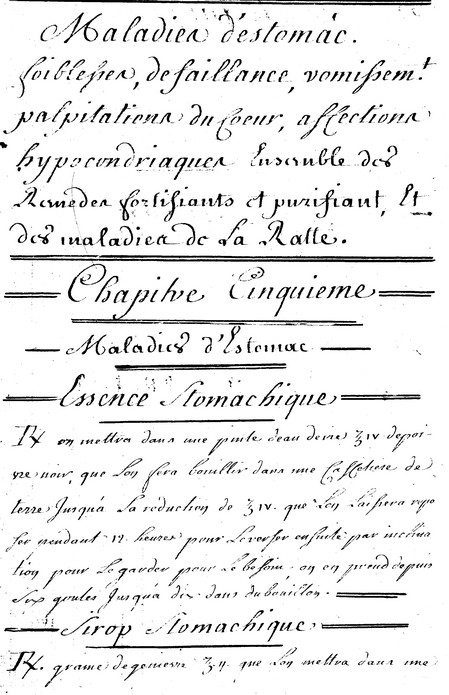 Maladies d'estomac.
foiblesses, defaillance, vomissem.t
palpitations du Coeur, affections
hypocondriaques Ensemble des
Remedes fortifiants et purifiant, Et
des maladies de La Ratte.
Chapitre Cinquieme
Maladies d'Estomac
Essence Stomachique
℞ on mettra dans une pinte deau devie ʒ IV depoi-
vre noir, que Lon fera bouillir dans une Caffetiere de
terre Jusqu'a La reduction de ʒ IV. que Lon Laissera repo
ser pendant 12 heures pour Leverser ensuite par inclina
tion pour Le garder pour Le besoin. on en prend depuis
Six goutes Jusqu'a dix. dans du bouillon.
Sirop Stomachique
℞. graine de genievre ʒ ij. que Lon mettra dans une